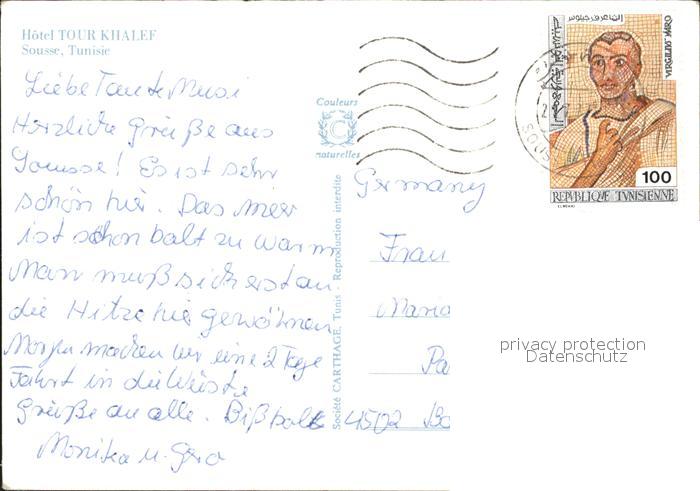 Hôtel TOUR KHALEF
Sousse, Tunisie
Liebe Tante Musi
Herzliche Grüße aus
Sousse! Es ist sehr
schön hier. Das Meer
ist schon balt zu warm
Man muß sich erst an
die Hitze hie gewöhnen
Morgen machen wir eine 2 Tage
Fahrt in die Wüste
Grüße an alle. Biß balt
Monika u. Gero
Couleurs
C
naturelles
Société CARTHAGE, Tunis - Reproduction interdite
VIRGILIUS MARO
100
REPUBLIQUE TUNISIENNE
Germany
Frau
Maria
Pa
4502 Ba
privacy protection
Datenschutz